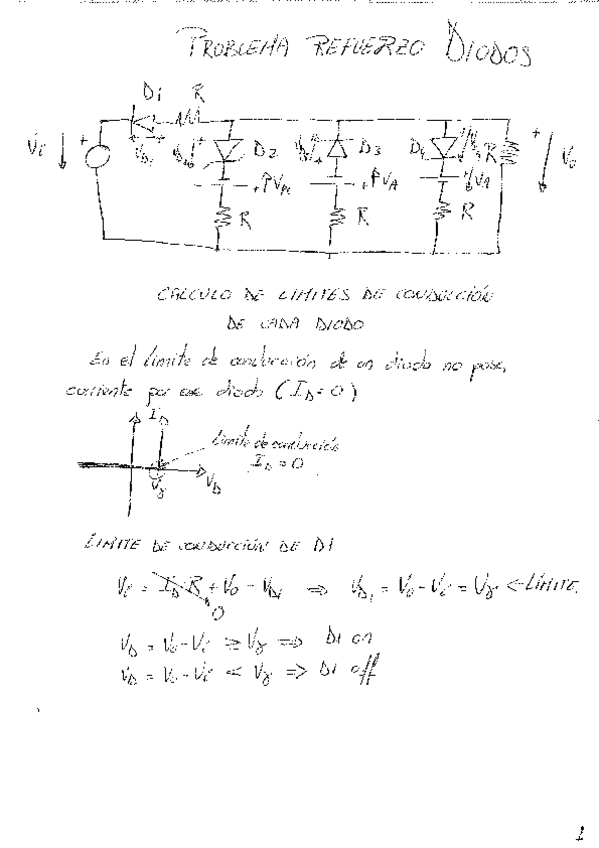 PROBLEMA REFUERZO DIODOS
D1 R
Vi + VD1 D2 D3 R + Vo
+ VA + VA VA
R R R
CALCULO DE LIMITES DE CONDUCCIÓN
DE CADA DIODO
En el límite de conducción de un diodo no pasa
corriente por ese diodo (ID=0)
ID
Límite de conducción
ID=0
Vγ VD
LIMITE DE CONDUCCIÓN DE D1
Vi = ID·R + Vo - VD1 ⇒ VD1 = Vo - Vi = Vγ ← LÍMITE.
0
VD = Vo - Vi ≥ Vγ ⇒ D1 on
VD = Vo - Vi < Vγ ⇒ D1 off
1